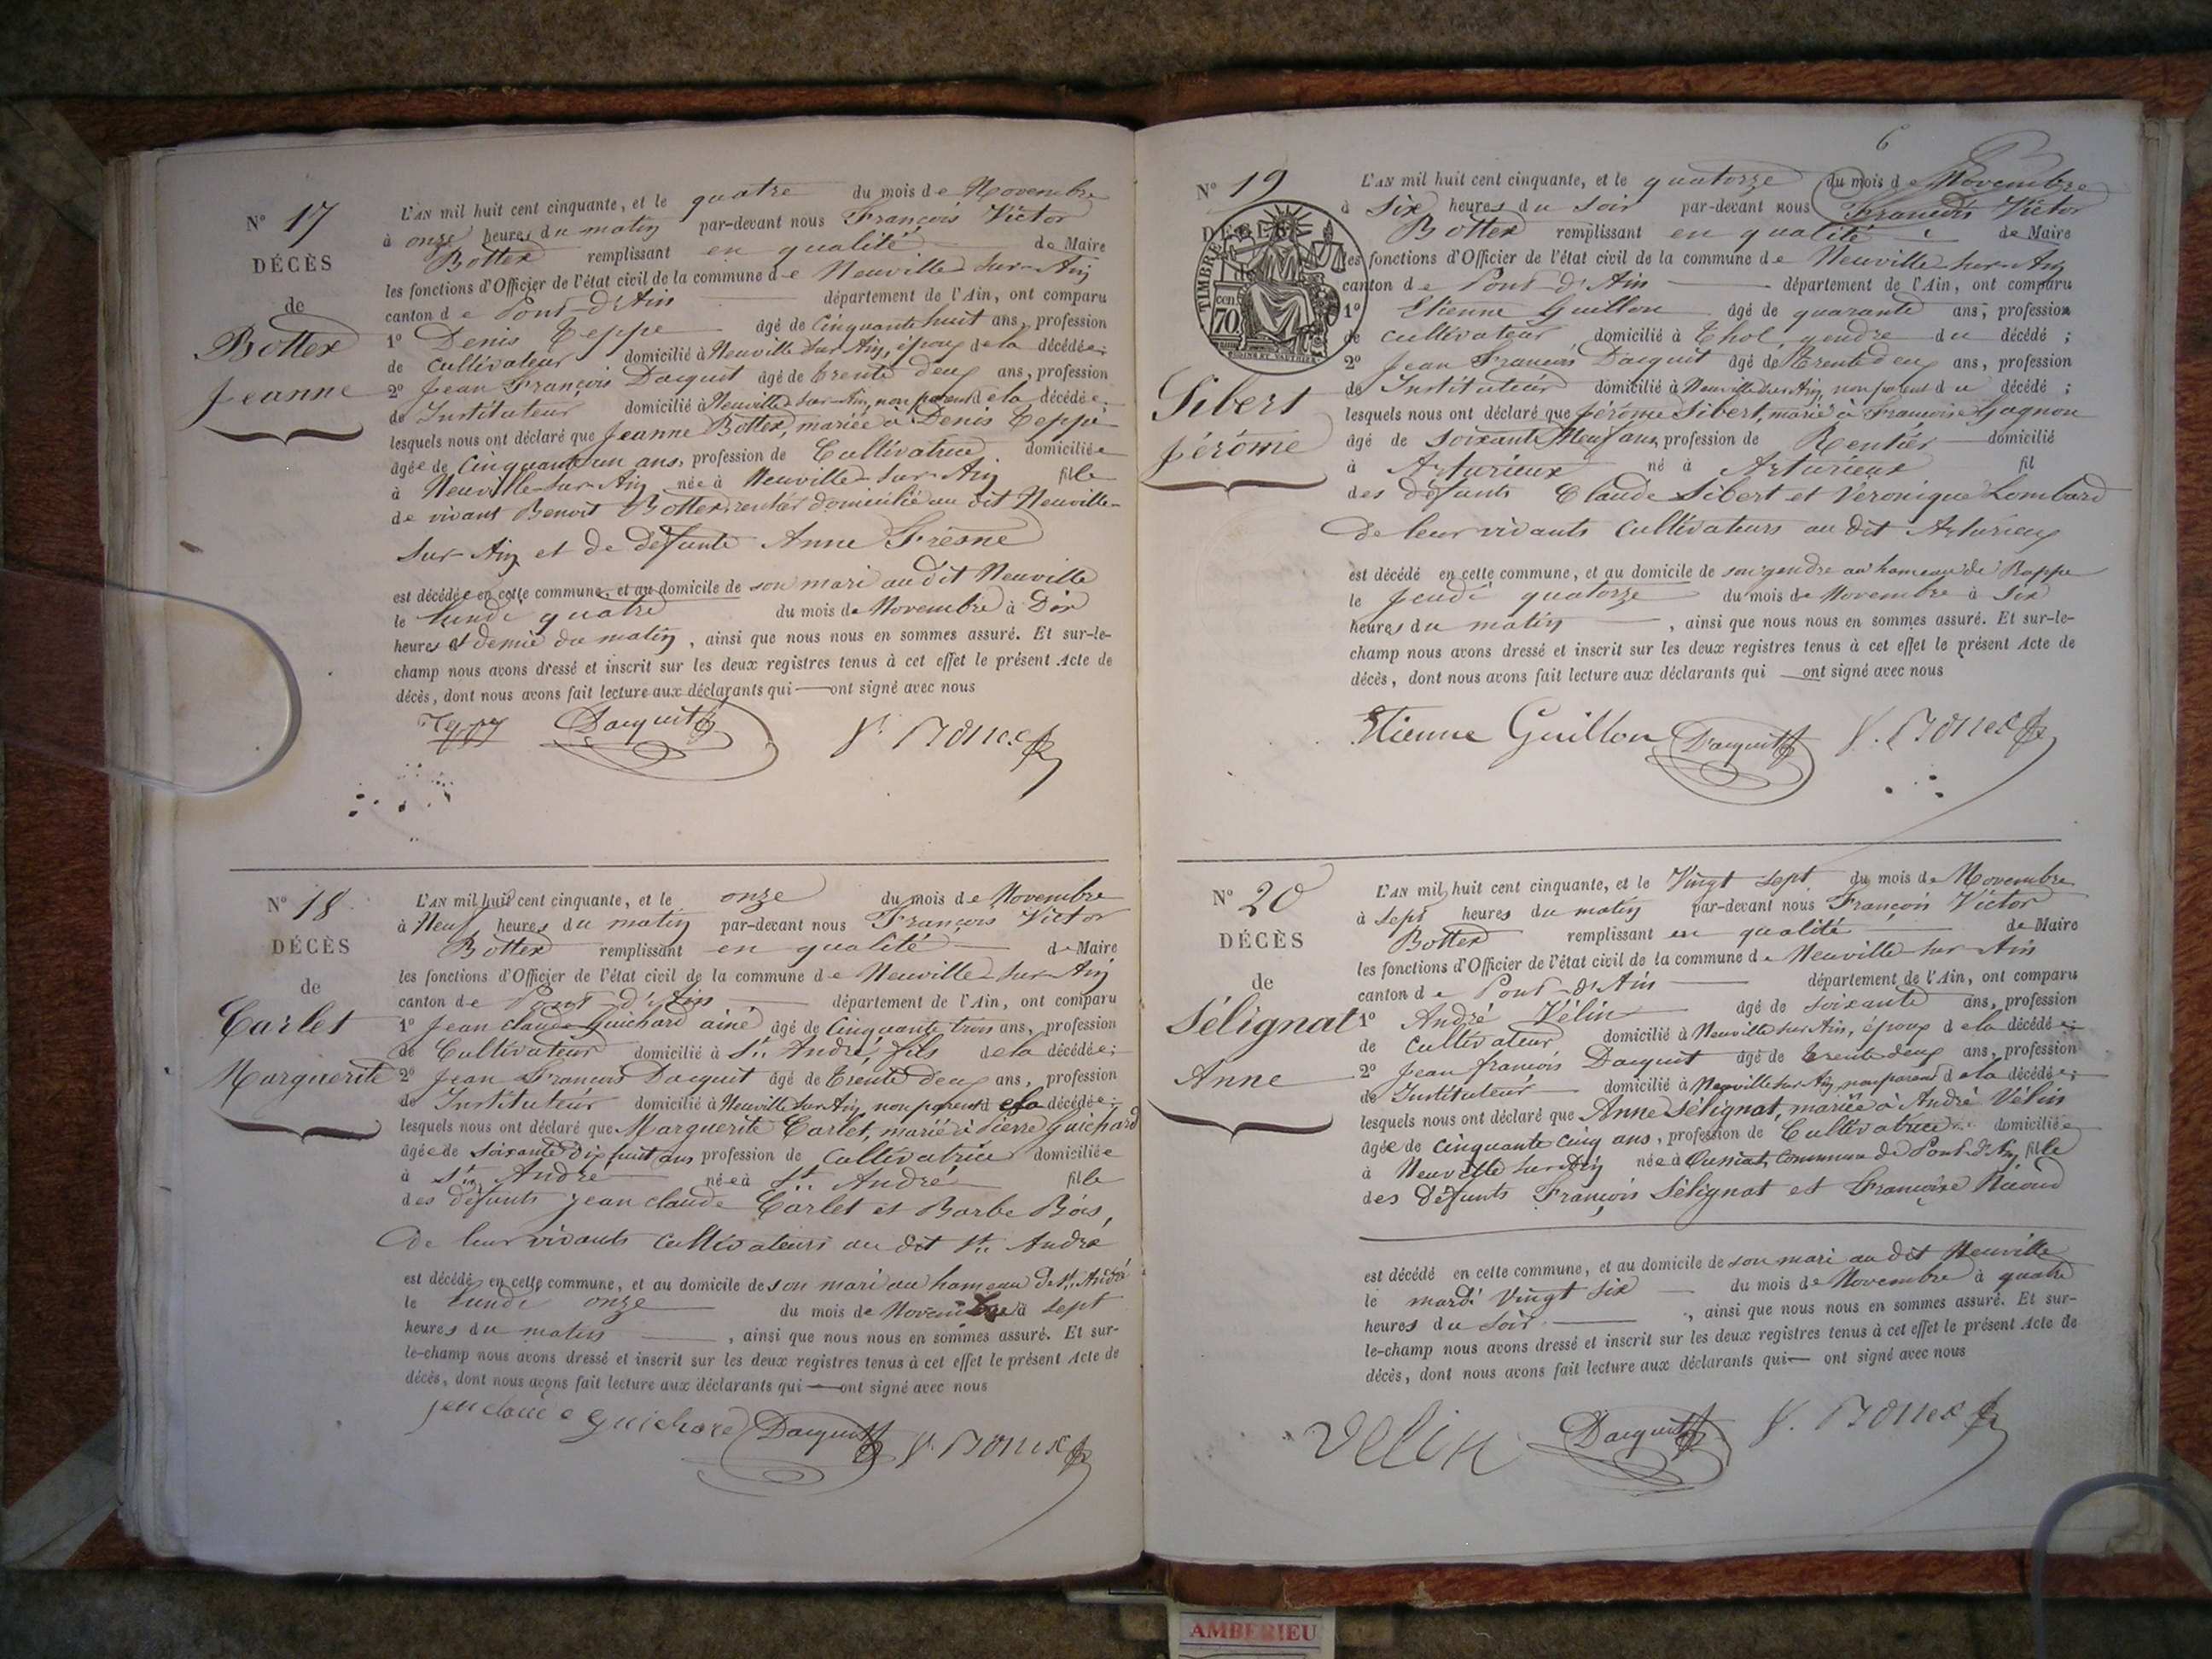 N° 17
DÉCÈS
de
Bottex
Jeanne
L'AN mil huit cent cinquante, et le quatre du mois de Novembre
à onze heures du matin par-devant nous François Victor
Bottex remplissant en qualité de Maire
les fonctions d'Officier de l'état civil de la commune de Neuville sur Ain
canton de Pont-d'Ain département de l'Ain, ont comparu
1° Denis Teppe âgé de Cinquante huit ans, profession
de Cultivateur domicilié à Neuville sur Ain, époux de la décédée;
2° Jean François Dacquit âgé de trente deux ans, profession
de Instituteur domicilié à Neuville sur Ain, non parent de la décédée;
lesquels nous ont déclaré que Jeanne Bottex, mariée à Denis Teppe
âgée de Cinquante un ans, profession de Cultivatrice domiciliée
à Neuville sur Ain née à Neuville sur Ain fille
de vivant Benoit Bottex rentier domicilié au dit Neuville-
sur Ain et de défunte Anne Fresne
est décédée en cette commune, et au domicile de son mari au dit Neuville
le lundi quatre du mois de Novembre à Dix
heures et demie du matin, ainsi que nous nous en sommes assuré. Et sur-le-
champ nous avons dressé et inscrit sur les deux registres tenus à cet effet le présent Acte de
décès, dont nous avons fait lecture aux déclarants qui ont signé avec nous
Dacquit V. Bottex
N° 18
DÉCÈS
de
Carlet
Marguerite
L'AN mil huit cent cinquante, et le onze du mois de Novembre
à Neuf heures du matin par-devant nous François Victor
Bottex remplissant en qualité de Maire
les fonctions d'Officier de l'état civil de la commune de Neuville sur Ain
canton de Pont-d'Ain département de l'Ain, ont comparu
1° Jean Claude Guichard ainé âgé de Cinquante trois ans, profession
de Cultivateur domicilié à St. André, fils de la décédée;
2° Jean François Dacquit âgé de Trente deux ans, profession
de Instituteur domicilié à Neuville sur Ain, non parent de la décédée;
lesquels nous ont déclaré que Marguerite Carlet, mariée à Pierre Guichard
âgée de soixante dix huit ans profession de Cultivatrice domiciliée
à St. André née à St. André fille
des défunts Jean claude Carlet et Barbe Bois,
De leur vivants cultivateurs au dit St. André
est décédé en cette commune, et au domicile de son mari au hameau de St. André
le lundi onze du mois de Novembre à sept
heures du matin, ainsi que nous nous en sommes assuré. Et sur-
le-champ nous avons dressé et inscrit sur les deux registres tenus à cet effet le présent Acte de
décès, dont nous avons fait lecture aux déclarants qui ont signé avec nous
Guichard Dacquit V. Bottex
6
N° 19
DÉCÈS
TIMBRE
70
Sibert
Jérôme
L'AN mil huit cent cinquante, et le quatorze du mois de Novembre
à Six heures du soir par-devant nous François Victor
Bottex remplissant en qualité de Maire
les fonctions d'Officier de l'état civil de la commune de Neuville sur Ain
canton de Pont d'Ain département de l'Ain, ont comparu
1° Etienne Guillon âgé de quarante ans, profession
de cultivateur domicilié à Thol, gendre du décédé;
2° Jean François Dacquit âgé de Trente deux ans, profession
de Instituteur domicilié à Neuville sur Ain, non parent du décédé;
lesquels nous ont déclaré que Jérôme Sibert, marié à Françoise Gagnon
âgé de soixante Neuf ans, profession de Rentier domicilié
à Arturieux né à Arturieux fil
des défunts Claude Sibert et Véronique Lombard
De leur vivants cultivateurs au dit Arturieux
est décédé en cette commune, et au domicile de son gendre au hameau de Rappe
le Jeudi quatorze du mois de Novembre à Six
heures du matin, ainsi que nous nous en sommes assuré. Et sur-le-
champ nous avons dressé et inscrit sur les deux registres tenus à cet effet le présent Acte de
décès, dont nous avons fait lecture aux déclarants qui ont signé avec nous
Etienne Guillon Dacquit V. Bottex
N° 20
DÉCÈS
de
Sélignat
Anne
L'AN mil huit cent cinquante, et le Vingt sept du mois de Novembre
à sept heures du matin par-devant nous François Victor
Bottex remplissant en qualité de Maire
les fonctions d'Officier de l'état civil de la commune de Neuville sur Ain
canton de Pont-d'Ain département de l'Ain, ont comparu
1° André Vélin âgé de soixante ans, profession
de cultivateur domicilié à Neuville sur Ain, époux de la décédée;
2° Jean françois Dacquit âgé de Trente deux ans, profession
de Instituteur domicilié à Neuville sur Ain, non parent de la décédée;
lesquels nous ont déclaré que Anne Sélignat, mariée à André Vélin
âgée de cinquante cinq ans, profession de Cultivatrice domiciliée
à Neuville sur Ain née à Oussiat, Commune de Pont d'Ain, fille
des défunts François Sélignat et Françoise
est décédé en cette commune, et au domicile de son mari au dit Neuville
le mardi Vingt six du mois de Novembre à quatre
heures du soir, ainsi que nous nous en sommes assuré. Et sur-
le-champ nous avons dressé et inscrit sur les deux registres tenus à cet effet le présent Acte de
décès, dont nous avons fait lecture aux déclarants qui ont signé avec nous
Velin Dacquit V. Bottex
AMBERIEU